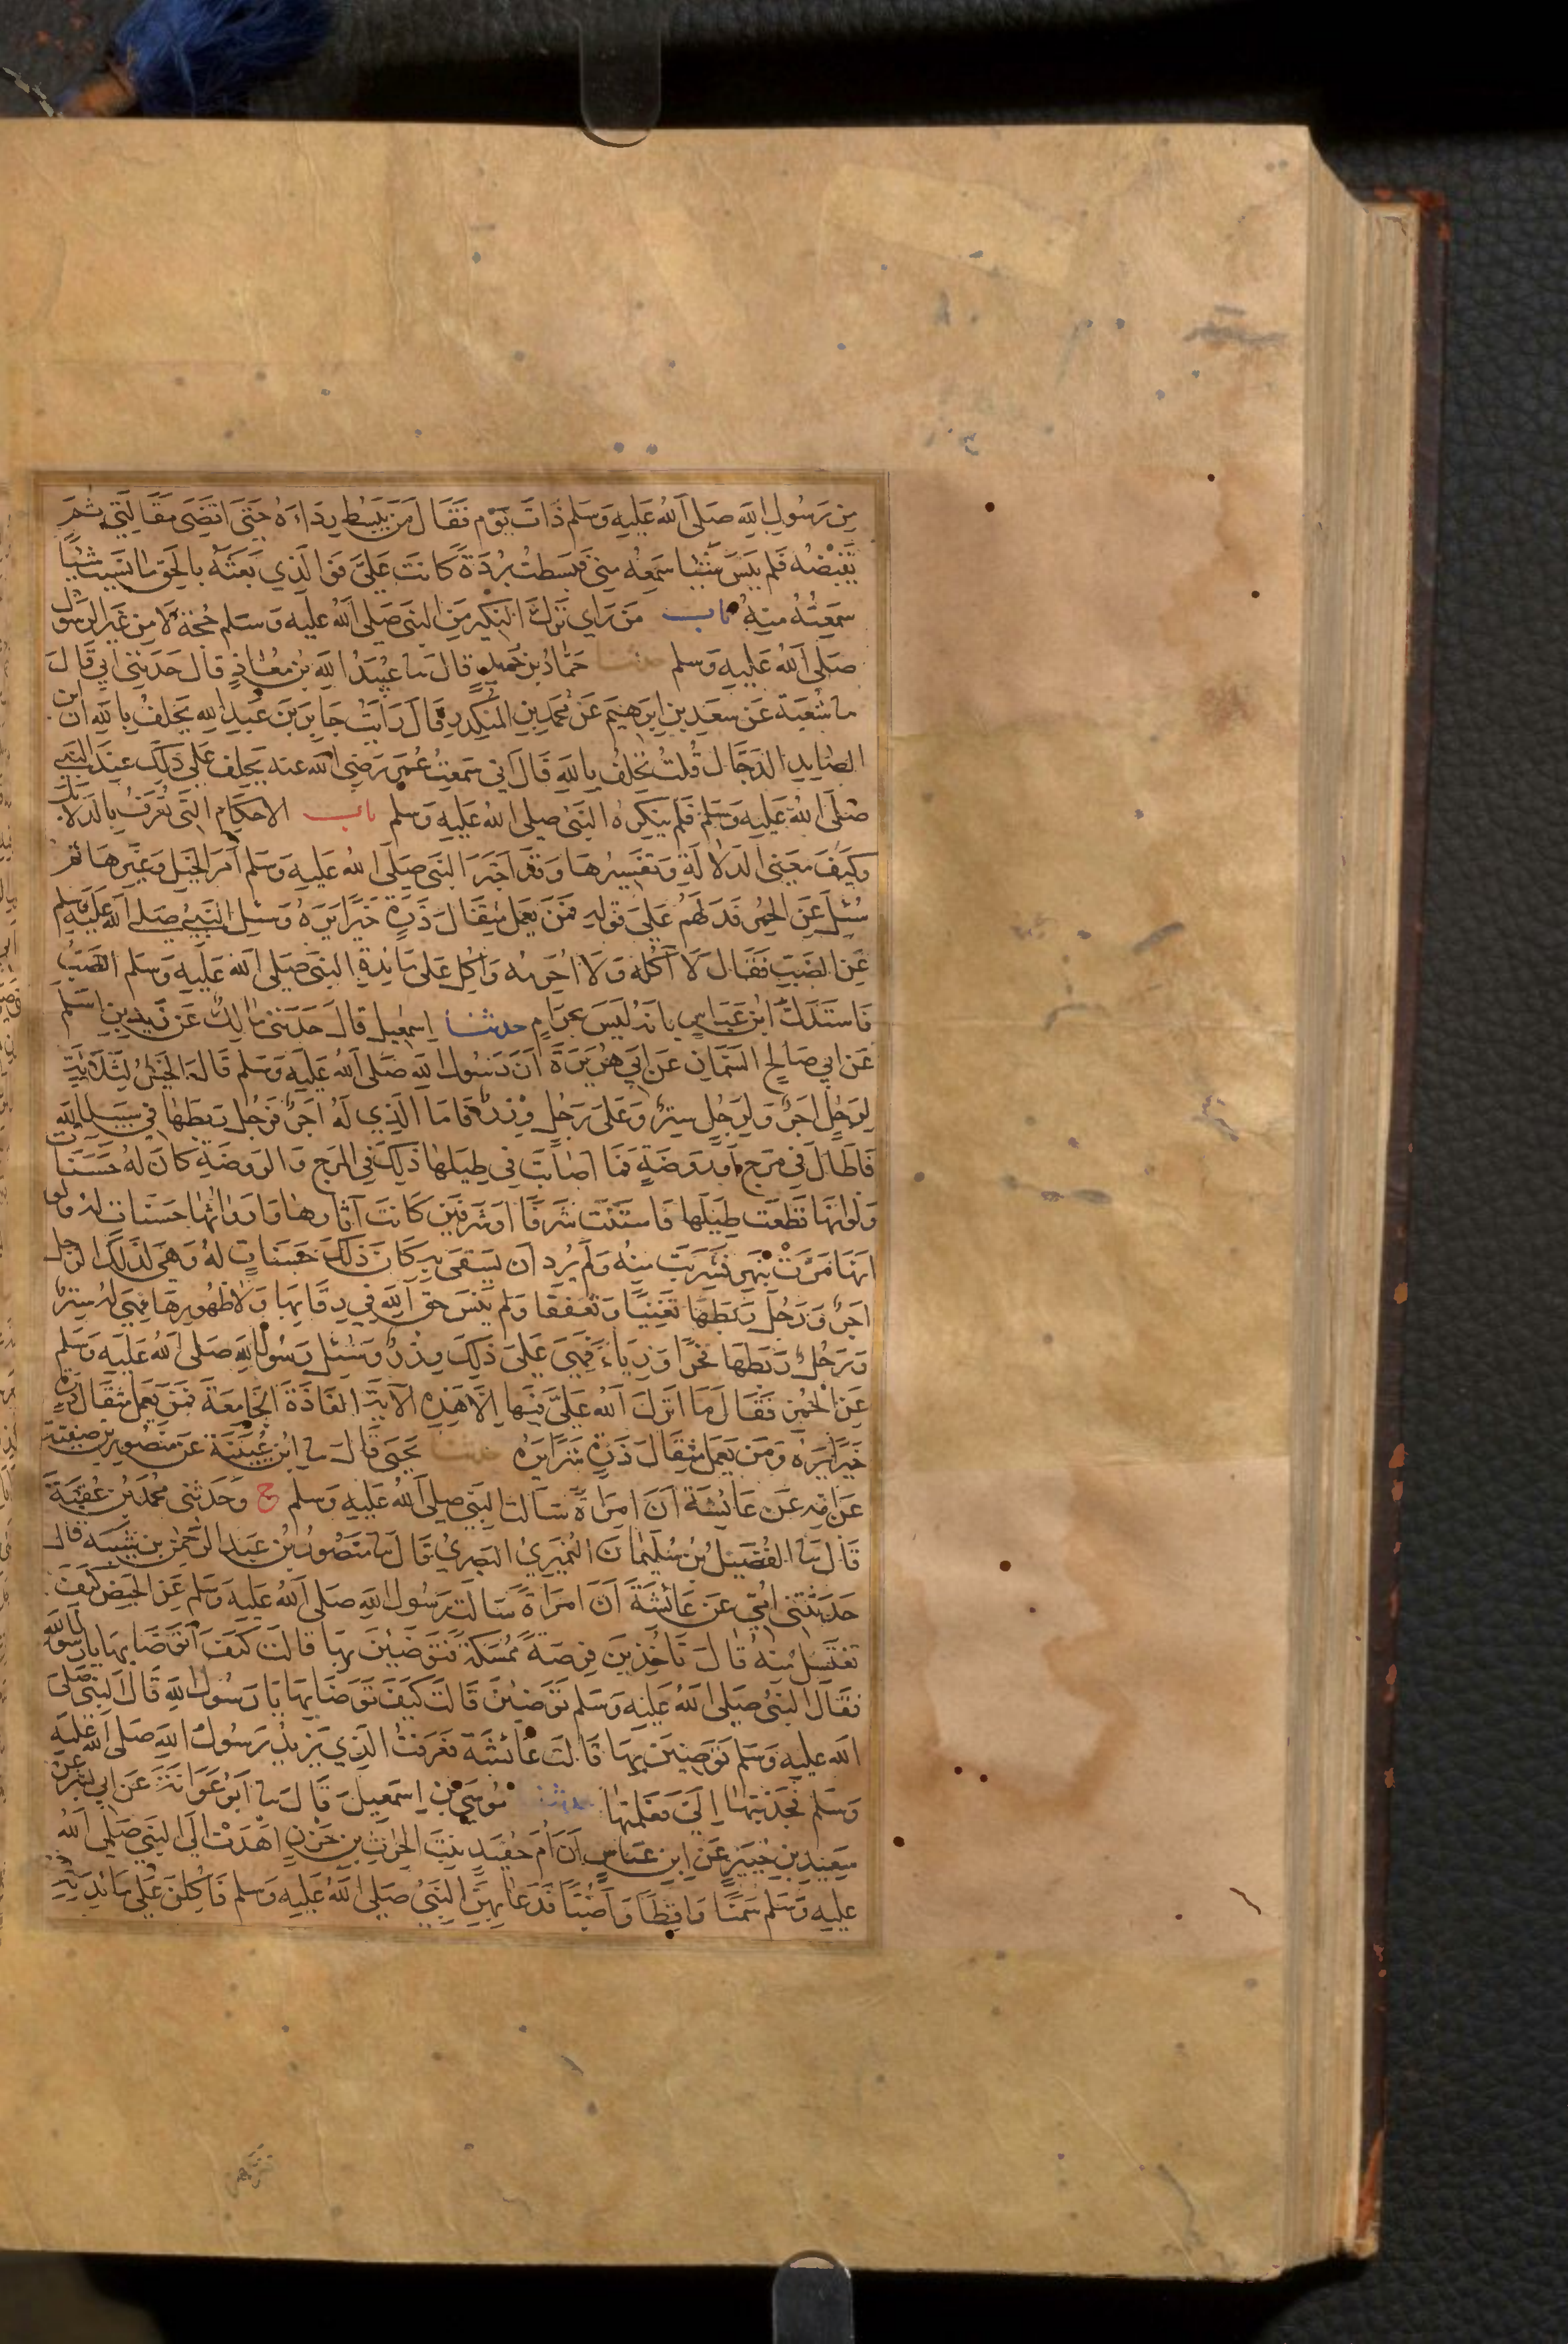 مِن رَسُولِ اللهِ صَلى اللهُ عَلَيهِ وَسَلم ذَاتَ يَوْم فَقَالَ مَن يَبْسُط رِدَاءَهُ حَتّى اقضَى مَقَالَتِي ثُمَّ
يَقبِضْهُ فَلم يَنسَ شَيْئا سَمِعَهُ مِني فَبَسَطْتُ بُرْدَةً كَانَت عَليَّ فَوَ الَّذِي بَعَثَهُ بِالْحَقِّ مَا نَسِيتُ شَيْئًا
سَمِعْتُهُ مِنهُ باب مَن رَاي تَرْكَ النكِير مِن النبي صَلى اللهُ عَليه وَسَلم حُجَّة لا مِن غَير الرسُول
صَلى اللهُ عَليهِ وَسلم حدثنا حَمَّادُ بن حُمَيدٍ قَالَ ما عُبَيدُ اللهِ بنُ مُعَاذٍ قَالَ حَدَثَنِي ابِي قَالَ
ما شُعبَة عَن سَعدِ بنِ ابرَهِيمَ عَن مُحَمدِ بنِ المنكَدِرِ قَالَ رَايتُ جَابِرَ بنَ عَبدِ اللهِ يَحلفُ بِاللهِ ان ابن
الصَّايدِ الدَجَّال قُلتُ تَحلِفُ بِاللهِ قَالَ اني سَمعتُ عُمَرَ رَضِيَ الله عنه يَحلِف عَلى ذَلِكَ عِندَ النبي
صَلى اللهُ عَليهِ وَسَلم فَلَم يُنكِرهُ النَّبي صَلى اللهُ عَليهِ وَسَلم باب الاحكَامِ التي تُعرَفُ بِالدَلايل
وَكَيفَ مَعنى الدَلالَةِ وَتفسِيرُهَا وَقد اخبَرَ النبي صَلى اللهُ عليهِ وَسَلم امرَ الخَيل وَغَيرِهَا ثمَّ
سُئِلَ عَنِ الحُمُر فَدَلهُم عَلى قَولِهِ فمَن يَعمَل مثِقَالَ ذَرَةٍ خَيرًا يَرَهُ وَسُئِلَ النَّبيُ صَلى اللهُ عَلَيهِ وسلم
عَن الضَبِّ فَقَال لا آكُلُه وَلا احَرِمُه وَاكِل عَلى مَائدةِ النبي صَلى الله عَليهِ وَسَلم الضَبُّ
فَاستَدَلَّ ابن عَبَّاسٍ بِانهُ لَيسَ بِحَرَامٍ حدثنا اِسمٰعيل قَالَ حَدثَنى مَالِكٌ عَن زَيدِ بنِ اسلَمَ
عَن ابي صَالِحٍ السَّمَّانِ عَن ابي هُرَيرَةَ اَنَ رَسُولَ اللهِ صَلى اللهُ عَليهِ وَسَلم قَالَ الخَيلُ لِثَلاثَةٍ
لِرَجُلٍ اجرٌ وَلِرَجُلٍ سِترٌ وَعَلى رَجُلٍ وِزرٌ فَامَا الَّذِي لَهُ اجرٌ فَرَجُل رَبَطَهَا في سَبيلِ اللهِ
فَاطَالَ في مَرجٍ اَو رَوضَةٍ فَمَا اصَابَت فِي طِيَلِهَا ذَلِكَ في المرَجِ وَالروضَةِ كَانَ لهُ حَسَنَات
وَلَو انهَا قَطَعَت طِيَلَهَا فَاستَنت شَرَفًا اوشَرَفَين كَانَت آثَارُهَا وَارواثُهَا حَسَنات لهُ وَلَو
انهَا مَرَّتْ بِنهَرٍ فَشَرِبَت مِنهُ وَلَم يُرِد ان يَسقىَ بِهِ كَانَ ذَلِكَ حَسَناتٍ لهُ وَهيَ لذَلكَ الرجل
اجرٌ وَرَجُل رَبَطهَا تَغَنِيًا وَتَعفُفًا وَلم يَنسَ حَق اللهِ فِي رِقَابِهَا وَلا ظُهُورِهَا فهِيَ لَهُ سِترٌ
وَرَجُلٌ رَبَطَهَا فخرًا وَرِيَاءً فَهِيَ عَلى ذَلِكَ وِزرٌ وَسُئِلَ رَسُولُ اللهِ صَلى اللهُ عَليهِ وَسَلم
عَنِ الحُمُرِ فَقَالَ مَا انزَلَ اللهُ عَليَّ فِيهَا اِلا هَذِهِ الآيَةَ الفَاذَّةَ الجَامعَةَ فَمن يَعمَل مِثقَالَ ذَرةٍ
خَيرًا يَرَهُ وَمَن يَعمَل مثِقَالَ ذَرةٍ شَرًا يَرَهُ حدثنا يَحيَى قَالَ ما ابن عُيَينَة عَن مَنصُورِ بنِ صَفيَّة
عَن امّهِ عَن عَائِشَةَ انَ امرَاةً سَالت النبي صَلى اللهُ عَليهِ وَسَلم ح وَحَدثنى محُمَّد بنُ عُقبَةَ
قَالَ ما الفُضَيلُ بنُ سُلَيمَانَ النُميرِيُ البَصرِيُ قَالَ ما مَنصُورُ بنُ عَبدِ الرَّحمٰنِ بنِ شَيبَه قال
حَدَثتنى امي عَن عَائِشَةَ انَ امرَاةً سَالَت رَسُولَ اللهِ صَلى اللهُ عَليهِ وَسَلم عَن الحَيضِ كَيفَ
تغتَسلُ مِنهُ قَالَ تَاخُذِينَ فِرصَةً مُمَسَّكَةً فَتَوَضئِينَ بِهَا قَالَت كَيفَ اتَوَضّا بِهَا يَا رَسُولَ اللهِ
فَقَالَ النبيُ صَلى اللهُ عَليهِ وَسَلم تَوَضئِينَ قَالَت كَيفَ تَوَضَا بِهَا يَا رَسُولَ اللهِ قَالَ النبي صَلى
الله عَليهِ وَسَلم تَوَضئِينَ بِهَا قَالَت عَائشَة فَعَرَفتُ الَّذِي يُرِيدُ رَسُولُ اللهِ صَلى الله عَليهِ
وَسَلم فَجَذَبتهَا اِلَيَّ فَعَلمتهَا حدثنا مُوسَى بن اِسمَعيل قَالَ ما ابُو عَوَانَةَ عَن ابي بشرٍ عَن
سَعِيدِ بنِ جُبَيرٍ عَنِ ابنِ عَباسٍ انَ امَّ حُفَيدٍ بنتَ الحرثِ بنِ حَزنٍ اهدَتْ الى النبي صَلى اللهُ
عَليهِ وَسَلم سَمنًا وَاقِطًا وَاضُبًّا فَدَعَا بهِنَّ النبيُ صَلى اللهُ عَليهِ وَسَلم فَاكِلنَ عَلى مَائِدَتِهِ